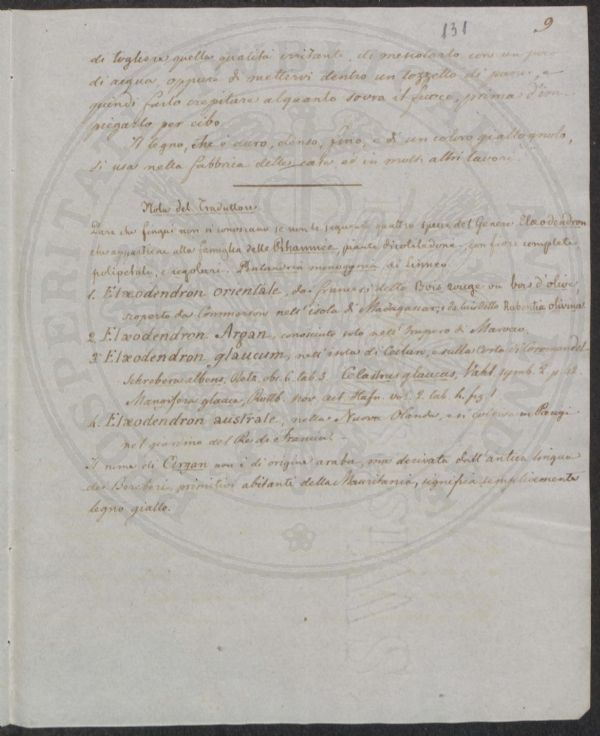 131 9
di togliere quella qualità irritante, di mescolarlo con un poco
di acqua, oppure di mettervi dentro un tozzetto di pane, e
quindi farlo crepitare alquanto sovra il fuoco, prima d'im-
piegarlo per cibo.
Il legno, che è duro, denso, fino, e di un colore giallognolo,
si usa nella fabbrica delle case ed in molti altri lavori.
Nota del Traduttore
Pare che finqui non si conoscano se non le seguenti quattro specie del Genere Elæodendron
che appartiene alla famiglia delle Rhamnée, piante dicotiledone, con fiore completo
polipetalo, e regolare. Pentandria monogynia di Linneo.
1. Elæodendron orientale, dai francesi detto Bois rouge ou bois d'olive,
scoperto da Commerson nell'isola di Madagascar, e da lui detto Rubentia olivina.
2. Elæodendron Argan, conosciuto solo nell'Impero di Marocco.
3. Elæodendron glaucum, nell'isola di Ceilan, e sulla Costa di Coromandel.
Schrebera albens, Retz. obs. 6. tab. 3. Celastrus glaucus, Vahl symb. 2. p. 42.
Mangifera glauca, Rottb. nov. act. Hafn. vol. 2. tab. 4. fig. 1
4. Elæodendron australe, nella Nuova Olanda, e si coltiva in Parigi
nel giardino del Re di Francia. -
Il nome di Argan non è di origine araba, ma derivata dall'antica lingua
dei Berberi, primitivi abitanti della Mauritania, significa semplicemente
legno giallo.